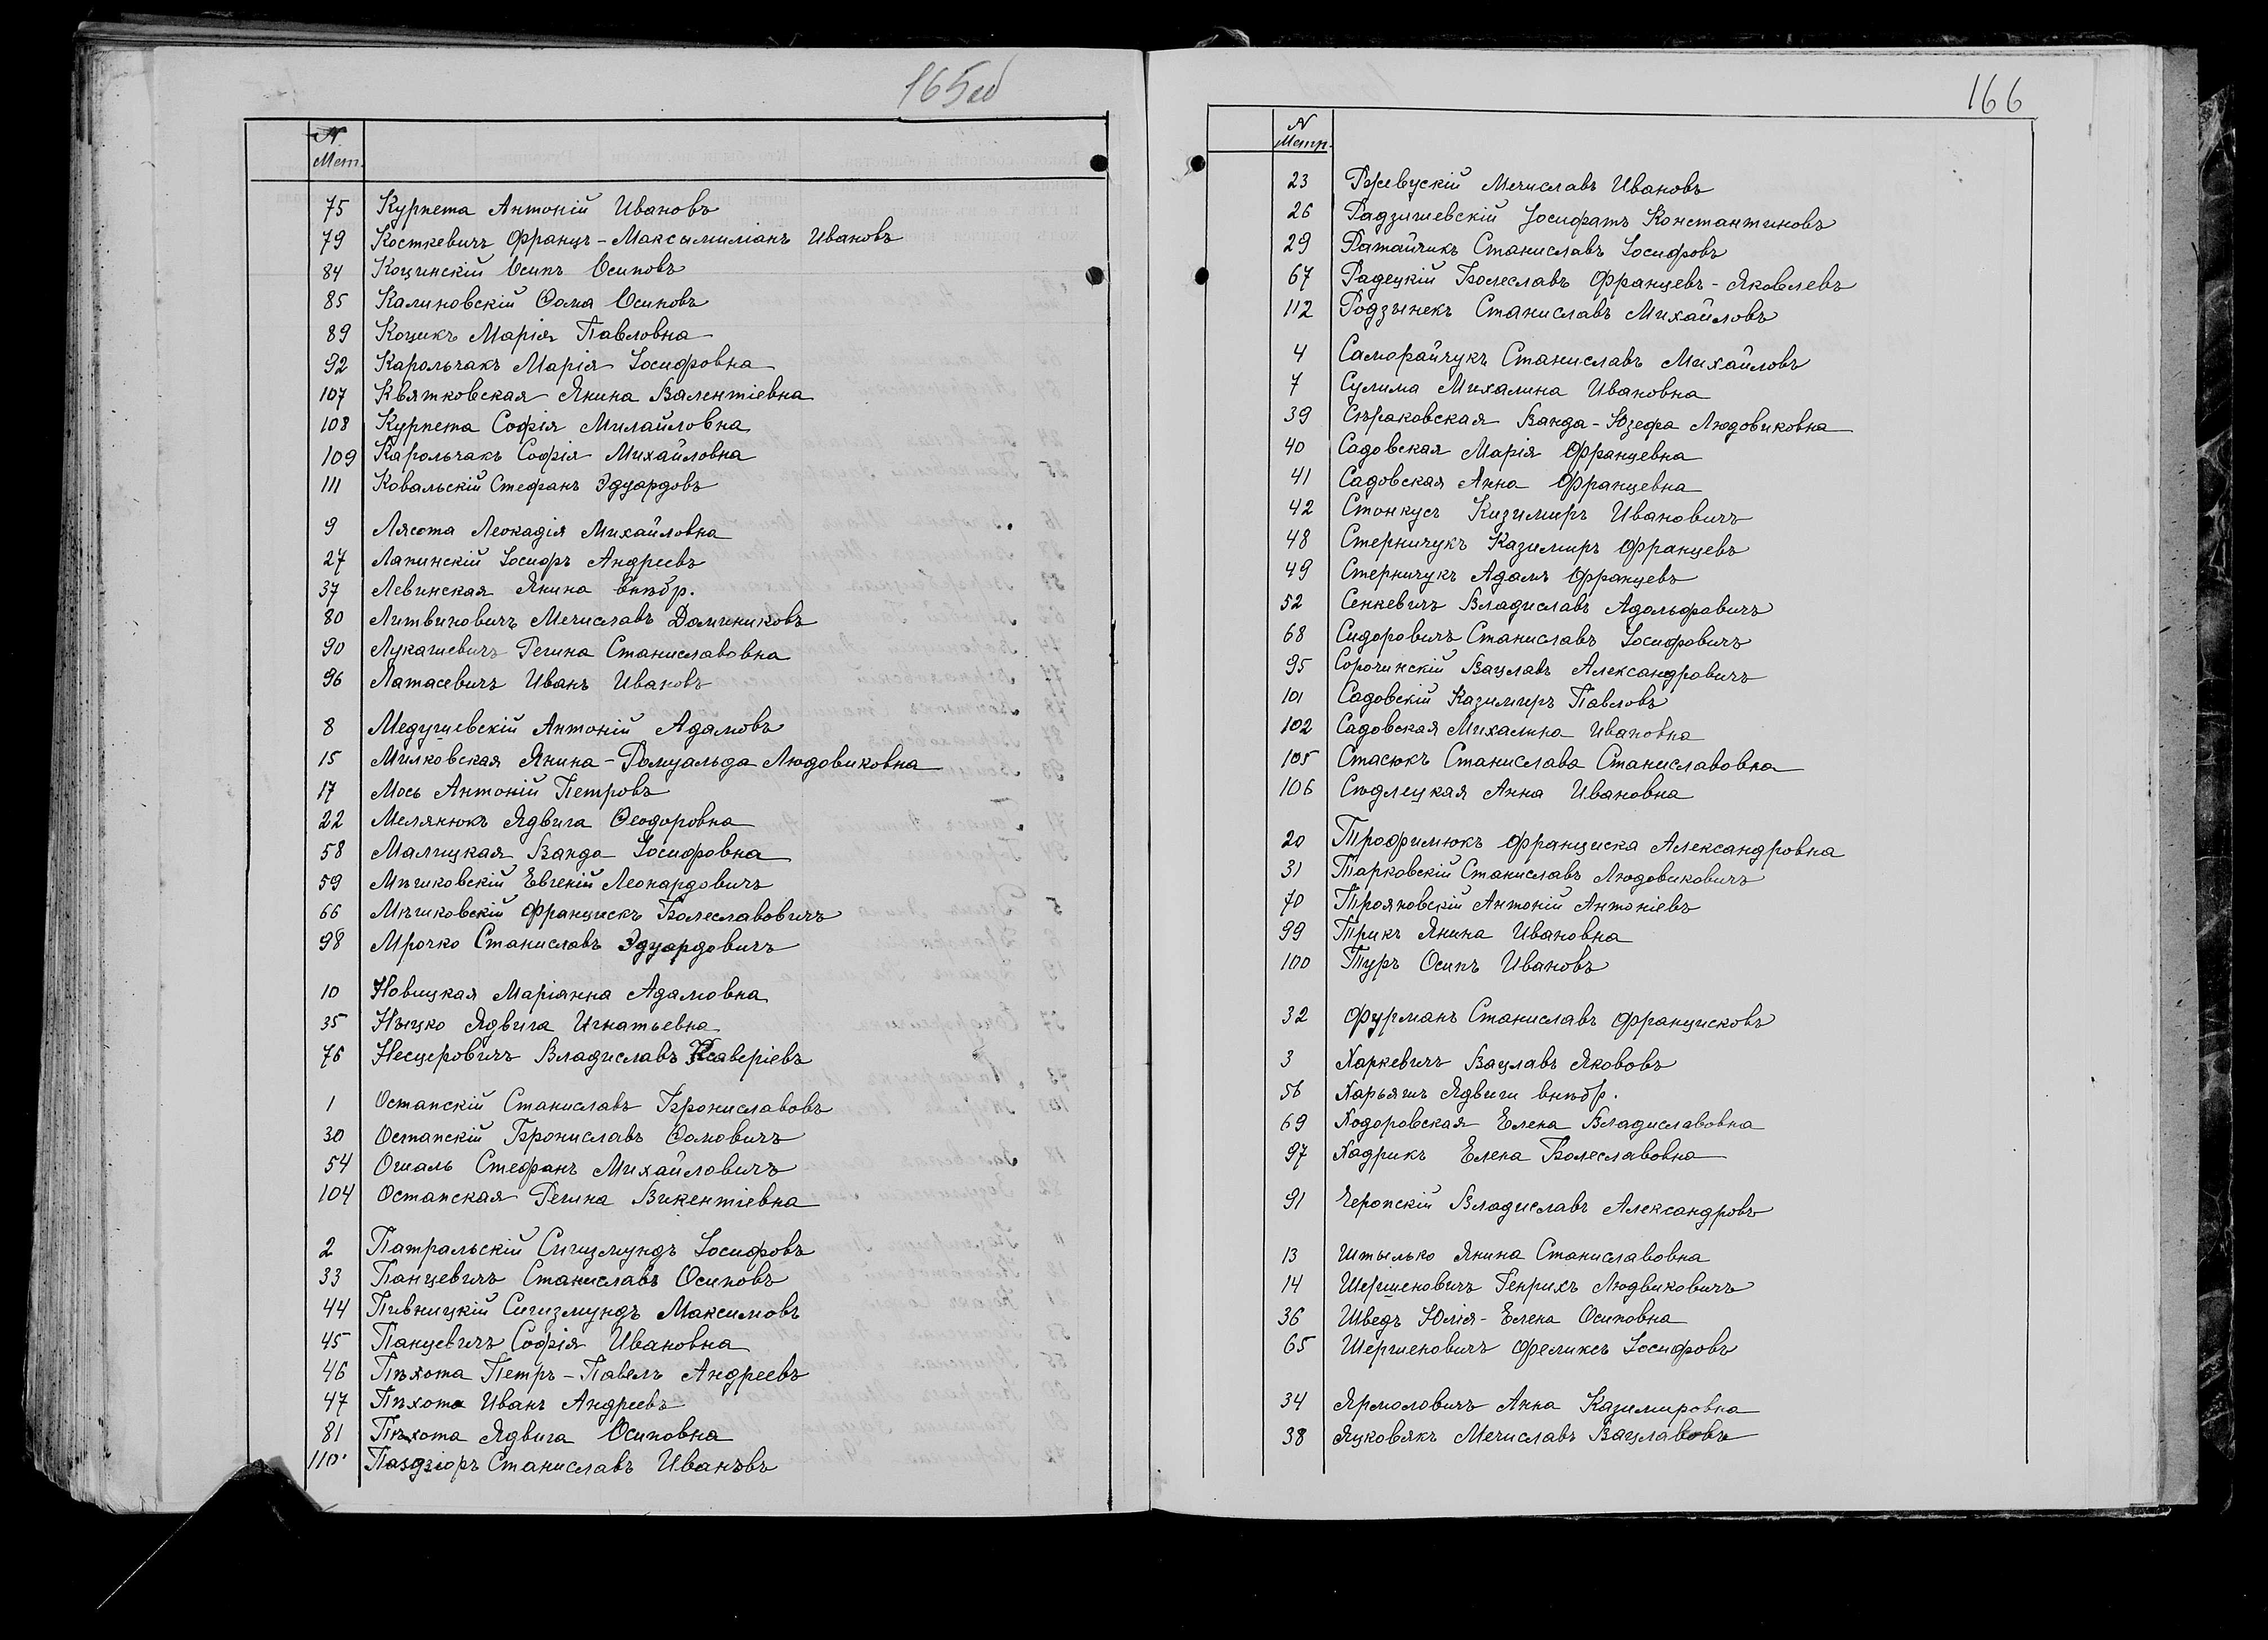 165об
N
Мет.
75 Курпета Антоній Ивановъ
79 Косткевичъ Францъ-Максимиліанъ Ивановъ
84 Коцинскій Осипъ Осиповъ
85 Калиновскій Ѳома Осиповъ
89 Коцикъ Марія Павловна
92 Карольчакъ Марія Іосифовна
107 Квятковская Янина Валентіевна
108 Курпета Софія Милайловна
109 Карольчакъ Софія Михайловна
111 Ковальскій Стефанъ Эдуардовъ
9 Лясота Леокадія Михайловна
27 Лапинскій Іосифъ Андреевъ
37 Левинская Янина внѣбр.
80 Литвиновичъ Мечиславъ Доминиковъ
90 Лукашевичъ Регина Станиславовна
96 Латасевичъ Иванъ Ивановъ
8 Медушевскій Антоній Адамовъ
15 Милковская Янина-Ромуальда Людовиковна
17 Мось Антоній Петровъ
22 Мелянюкъ Ядвига Ѳеодоровна
58 Малицкая Ванда Іосифовна
59 Мѣшковскій Евгеній Леонардовичъ
66 Мѣшковскій Францискъ Болеславовичъ
98 Мрочко Станиславъ Эдуардовичъ
10 Новицкая Маріанна Адамовна
35 Ныцко Ядвига Игнатьевна
76 Несцеровичъ Владиславъ Ксаверіевъ
1 Остапскій Станиславъ Брониславовъ
30 Остапскій Брониславъ Ѳомовичъ
54 Ошаль Стефанъ Михайловичъ
104 Остапская Регина Викентіевна
2 Патральскій Сигизмундъ Іосифовъ
33 Панцевичъ Станиславъ Осиповъ
44 Пивницкій Сигизмундъ Максимовъ
45 Панцевичъ Софія Ивановна
46 Пѣхота Петръ-Павелъ Андреевъ
47 Пѣхота Иванъ Андреевъ
81 Пѣхота Ядвига Осиповна
110 Паздзіоръ Станиславъ Ивановъ
166
N
Метр.
23 Ржевускій Мечиславъ Ивановъ
26 Радзишевскій Іосифатъ Константиновъ
29 Ратайчикъ Станиславъ Іосифовъ
67 Радецкій Болеславъ Францевъ-Яковлевъ
112 Родзынекъ Станиславъ Михайловъ
4 Саморайчукъ Станиславъ Михайловъ
7 Сулима Михалина Ивановна
39 Сѣраковская Ванда-Юзефа Людовиковна
40 Садовская Марія Францевна
41 Садовская Анна Францевна
42 Стонкусъ Кизимиръ Ивановичъ
48 Стерничукъ Казимиръ Францевъ
49 Стерничукъ Адамъ Францевъ
52 Сенкевичъ Владиславъ Адольфовичъ
68 Сидоровичъ Станиславъ Іосифовичъ
95 Сорочинскій Вацлавъ Александровичъ
101 Садовскій Казимиръ Павловъ
102 Садовская Михалина Ивановна
105 Стасюкъ Станислава Станиславовна
106 Сѣдлецкая Анна Ивановна
20 Трофимюкъ Франциска Александровна
31 Тарковскій Станиславъ Людовиковичъ
70 Трояновскій Антоній Антоніевъ
99 Трикъ Янина Ивановна
100 Туръ Осипъ Ивановъ
32 Фурманъ Станиславъ Францисковъ
3 Харкевичъ Вацлавъ Якововъ
56 Харьяшъ Ядвиги внѣбр.
69 Ходоровская Елена Владиславовна
97 Хадрикъ Елена Болеславовна
91 Черопскій Владиславъ Александровъ
13 Штылько Янина Станиславовна
14 Шершеновичъ Генрихъ Людвиковичъ
36 Шведъ Юлія-Елена Осиповна
65 Шершеновичъ Феликсъ Іосифовъ
34 Ярмоловичъ Анна Казимировна
38 Яцковякъ Мечиславъ Вацлавовъ